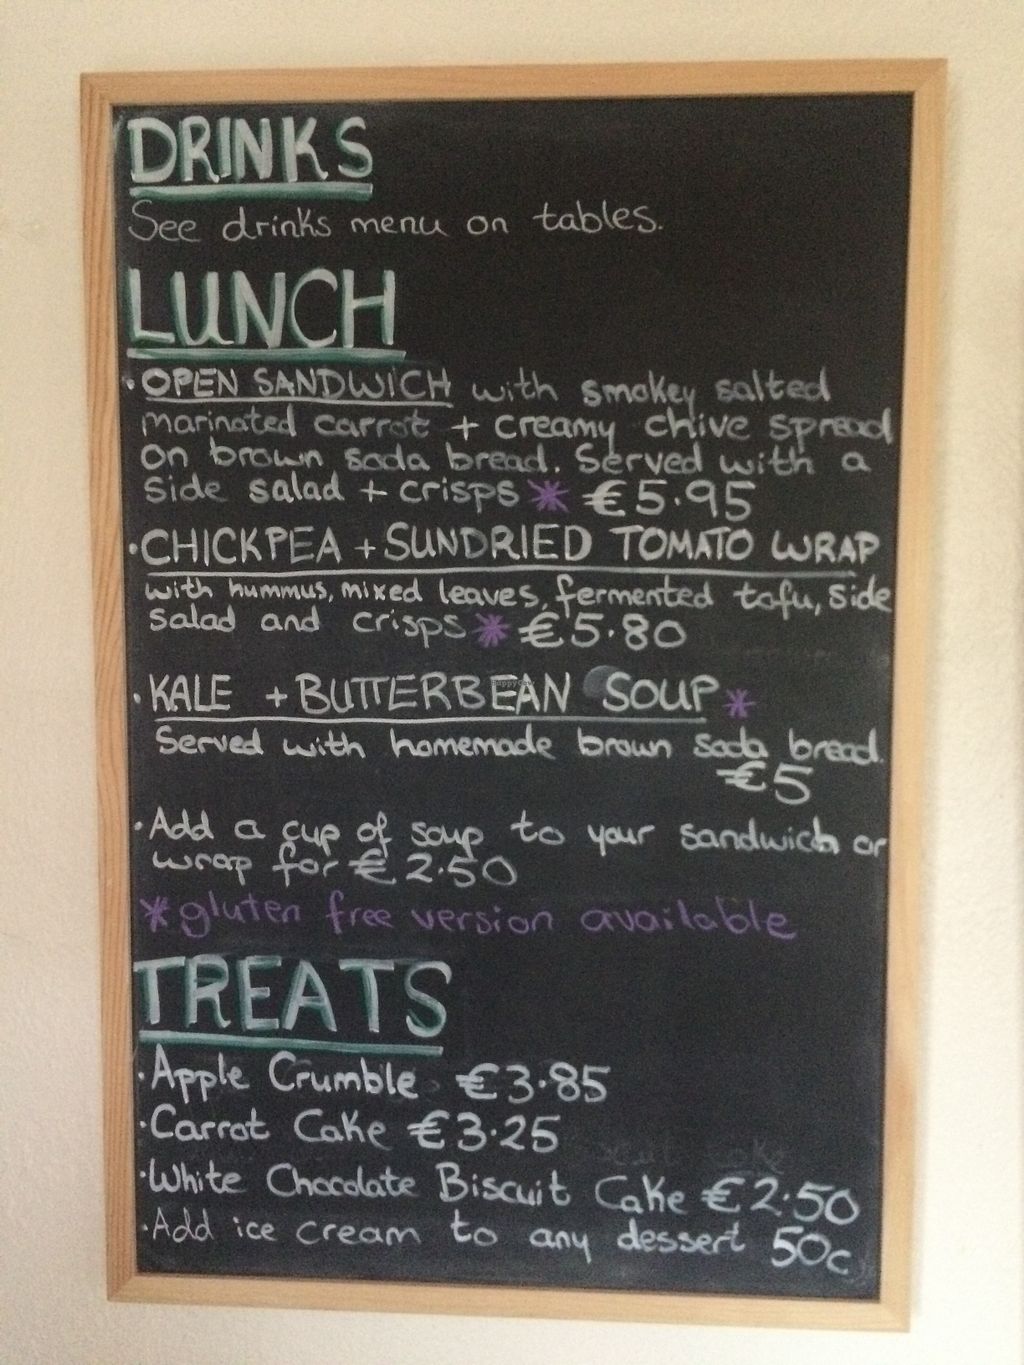 DRINKS
See drinks menu on tables.
LUNCH
• OPEN SANDWICH with smokey salted
marinated carrot + creamy chive spread
on brown soda bread. Served with a
side salad + crisps * €5.95
• CHICKPEA + SUNDRIED TOMATO WRAP
with hummus, mixed leaves, fermented tofu, side
salad and crisps * €5.80
• KALE + BUTTERBEAN SOUP *
Served with homemade brown soda bread.
€5
• Add a cup of soup to your sandwich or
wrap for €2.50
* gluten free version available
TREATS
• Apple Crumble €3.85
• Carrot Cake €3.25
• White Chocolate Biscuit Cake €2.50
• Add ice cream to any dessert 50c